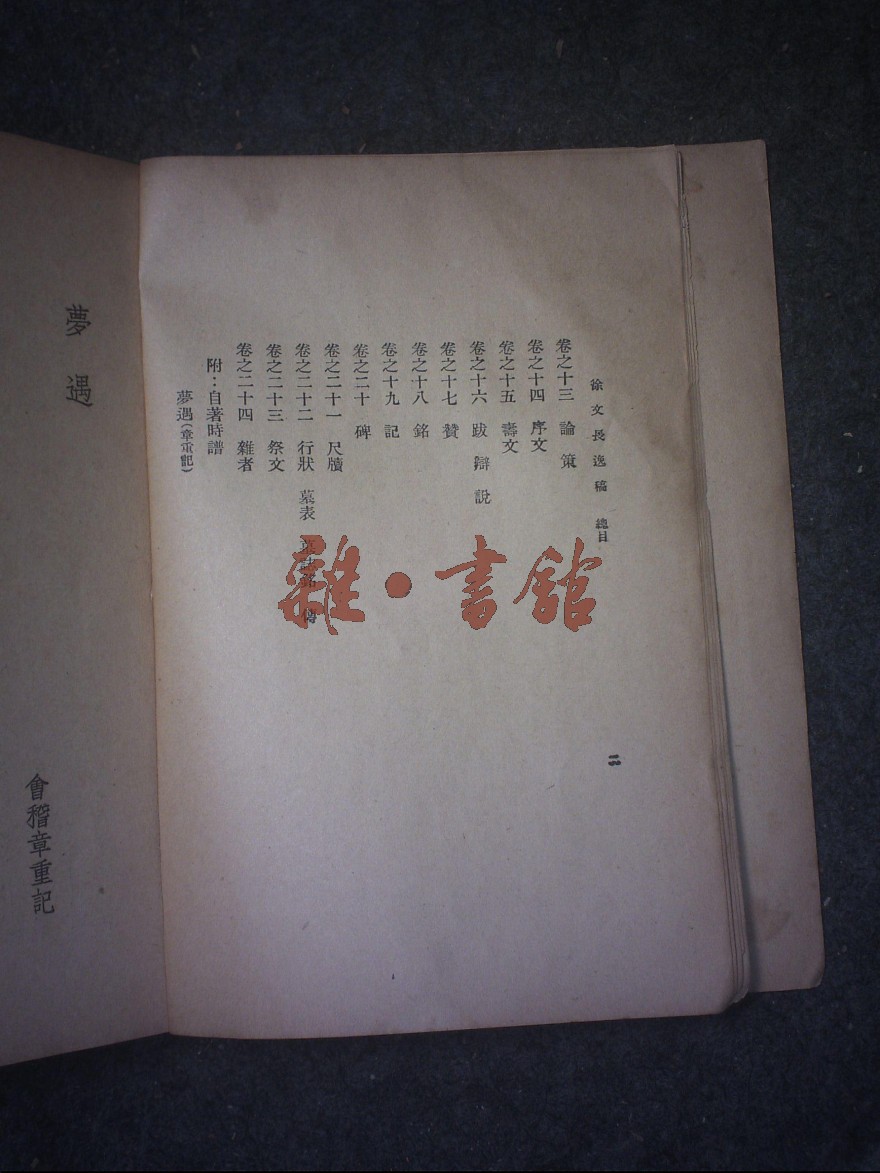 徐文長逸稿 總目
二
卷之十三 論 策
卷之十四 序文
卷之十五 壽文
卷之十六 跋 辯 説
卷之十七 贊
卷之十八 銘
卷之十九 記
卷之二十 碑
卷之二十一 尺牘
卷之二十二 行狀 墓表 墓誌銘 傳
卷之二十三 祭文
卷之二十四 雜者
附：自著畤譜
夢遇(章重記)
夢遇
會稽章重記
雜·書館